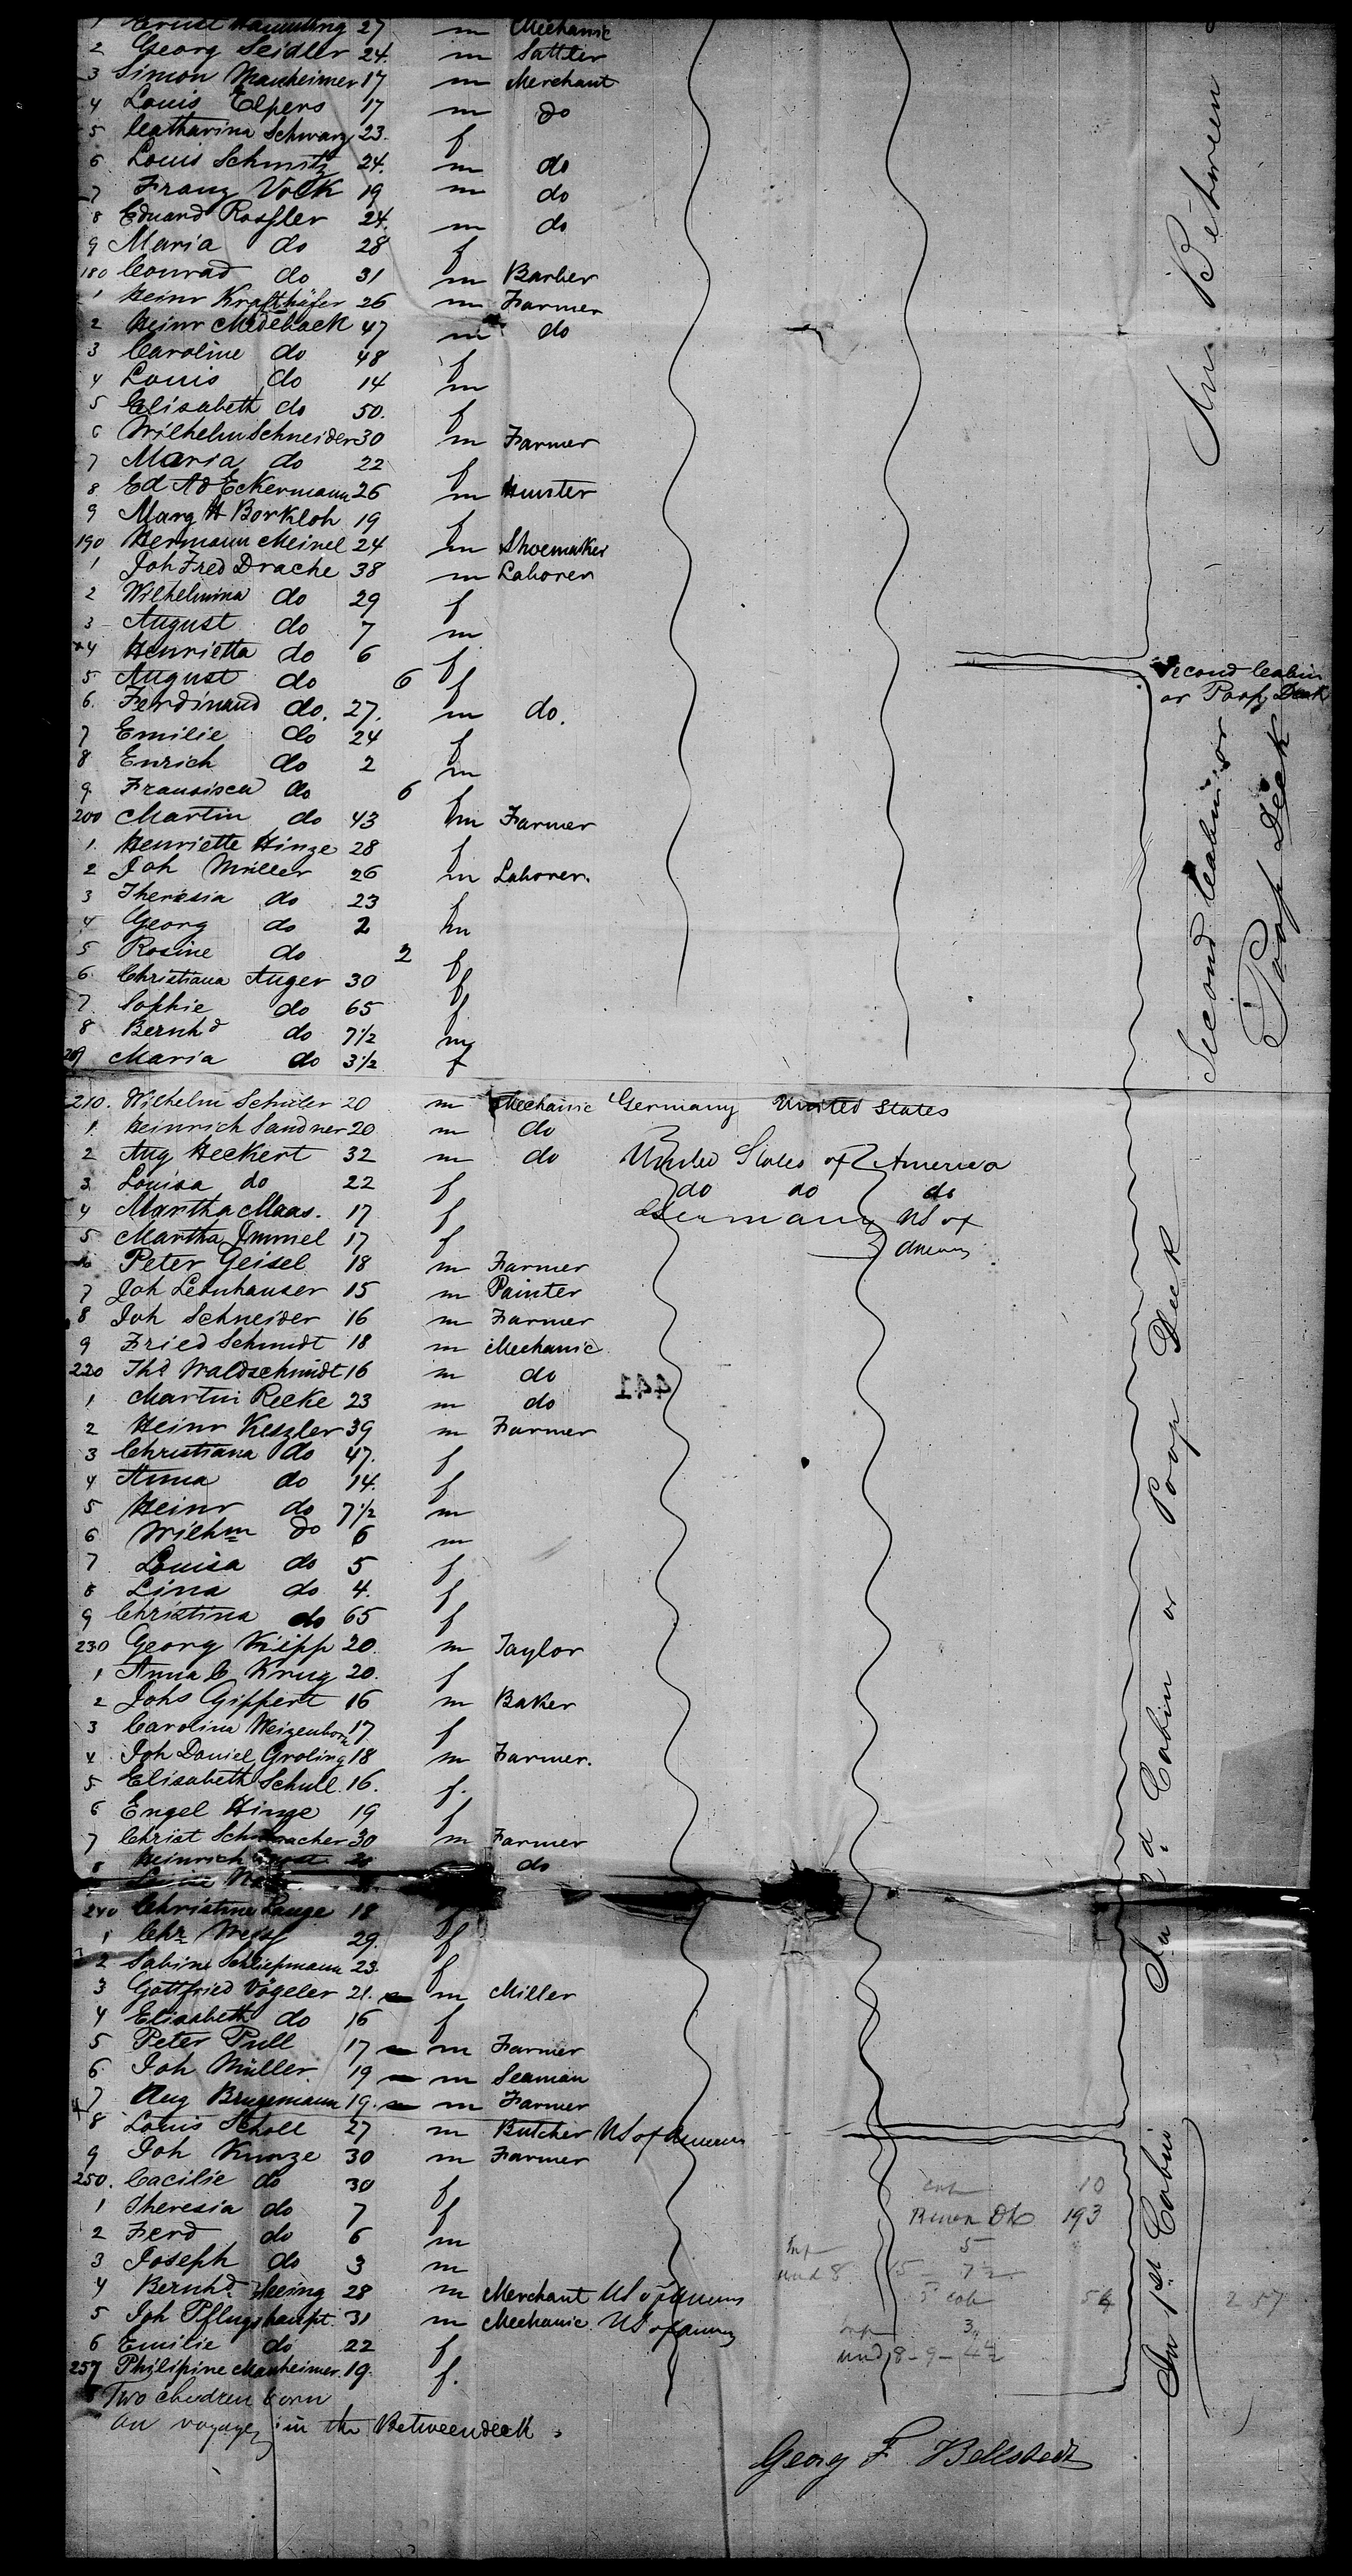 1 Ernst 27 m Mechanic
2 Georg Seidler 24. m Sattler
3 Simon Manheimer 17 m Merchant
4 Louis Elpers 17 m do
5 Catharina Schwarz 23. f
6 Louis Schmitz 24. m do
7 Franz Volk 19 m do
8 Eduard Rossler 24. m do
9 Maria do 28 f
180 Conrad do 31 m Barber
1 Heinr Krafthäfer 26 m Farmer
2 Heinr Medeback 47 m do
3 Caroline do 48 f
4 Louis do 14 m
5 Elisabeth do 50. f
6 Wilhelm Schneider 30 m Farmer
7 Maria do 22 f
8 Ed Ad Eckermann 26 m Hunter
9 Marg H Borkloh 19 f
190 Hermann Meinel 24 m Shoemaker
1 Joh Fred Drache 38 m Laborer
2 Wilhelmina do 29 f
3 August do 7 m
4 Henrietta do 6 f
5 August do 6 f
6. Ferdinand do. 27. m do.
7 Emilie do 24 f
8 Enrich do 2 m
9 Fransisca do 6 f
200 Martin do 43 m Farmer
1. Henriette Hinze 28 f
2 Joh Müller 26 m Laborer.
3 Theresia do 23 f
4 Georg do 2 m
5 Rosine do 2 f
6. Christiana Auger 30 f
7. Sophie do 65 f
8 Bernhd do 7½ m
209 Maria do 3½ f
210. Wilhelm Schuler 20 m Mechanic Germany United States
1. Heinrich Sandner 20 m do
2 Aug Heckert 32 m do United States of America
3. Louisa do 22 f do do do
4 Martha Maas. 17 f Germany US of
5 Martha Immel 17 f America
6 Peter Geisel 18 m Farmer
7 Joh Leonhauser 15 m Painter
8 Joh Schneider 16 m Farmer
9 Fried Schmidt 18 m Mechanic
220 Thd Waldschmidt 16 m do
441
1 Martin Reeke 23 m do
2 Heinr Keszler 39 m Farmer
3 Christiana do 47. f
4 Anna do 14. f
5 Heinr do 7½ m
6 Wilhm do 6 m
7 Louisa do 5 f
8 Lina do 4. f
9 Christina do 65 f
230 Georg Kiepp 20 m Taylor
1 Anna C Krug 20. f
2 Johs Gippert 16 m Baker
3 Carolina Weizenborn 17 f
4 Joh Daniel Groling 18 m Farmer.
5 Elisabeth Schull. 16. f.
6 Engel Hinze 19 f
7 Christ Schumacher 30 m Farmer
8 Heinrich do
240 Christine Lange 18 f
1 Chr Weiss 29. f
2 Sabine Schliepmann 23. f
3 Gottfried Vögeler 21. m Miller
4 Elisabeth do 16 f
5 Peter Pull 17 m Farmer
6. Joh Müller 19 m Seaman
7 Aug Brugemann 19. m Farmer
8 Louis Scholl 27 m Butcher US of America
9 Joh Kunze 30 m Farmer
250. Cacilie do 30 f
1 Theresia do 7 f
2 Ferd do 6 m
3 Joseph do 3 m
4 Bernhd. Seeing 28 m Merchant US of America
5 Joh Pflugshaupt. 31 m Mechanic US of America
6 Emilie do 22 f
257 Philipine Manheimer. 19. f.
Two children born
on voyage in the Betweendeck.
Georg F Bellstedt
In Between
Second Cabin
or Poop Deck
Second Cabin or
Poop Deck
In 2d Cabin or Poop Deck
In 1st Cabin
10
193
5
257